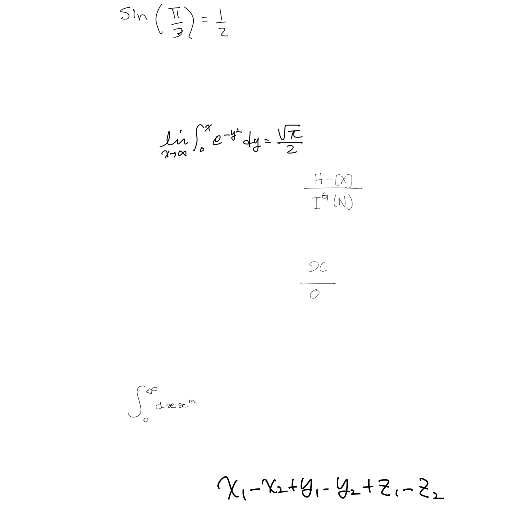 sin(π/3) = 1/2
lim x→∞ ∫₀ˣ e^(-y²) dy = √π/2
H-[X] / I^G(N)
x / 0
∫₀^∞ dx x^n
x₁-x₂+y₁-y₂+z₁-z₂